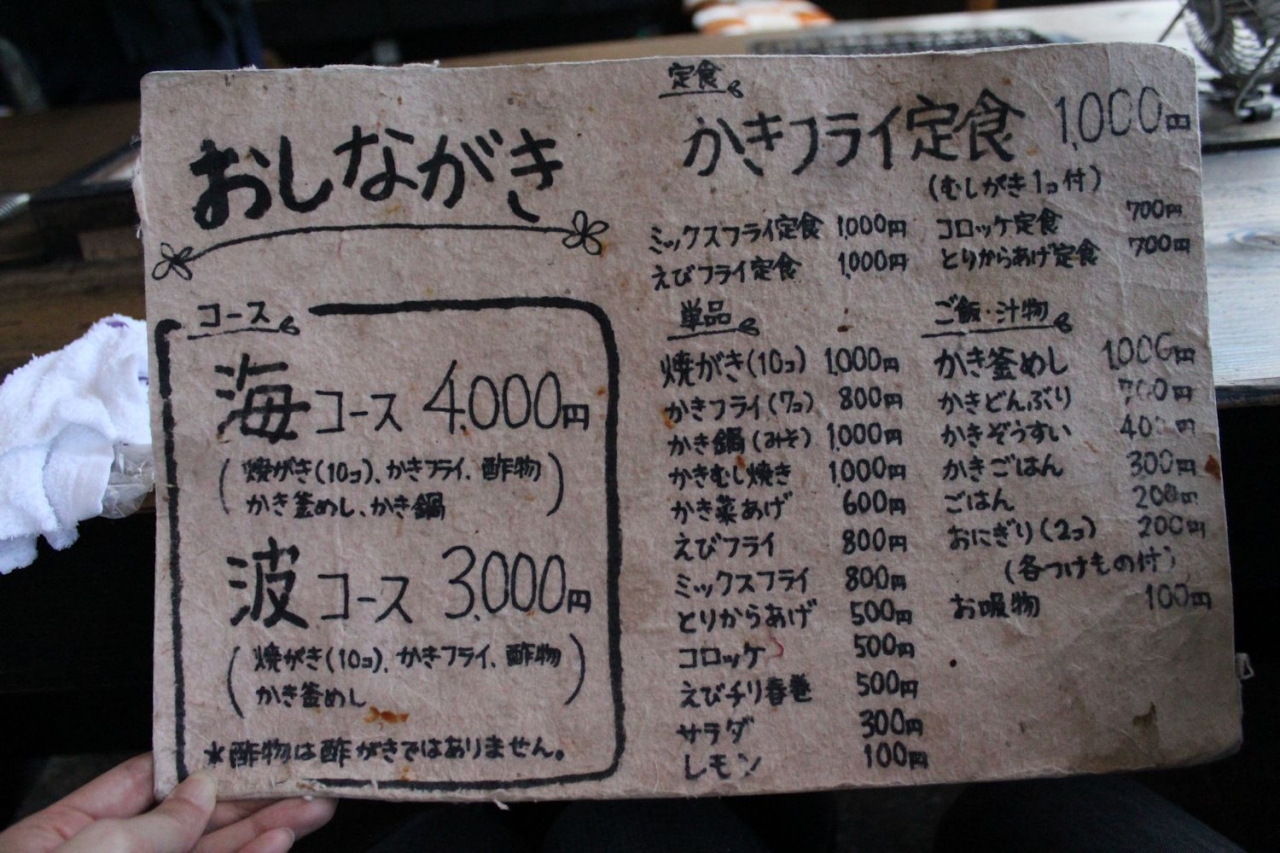 おしながき
コース
海コース 4,000円
(焼がき(10コ)、かきフライ、酢物
かき釜めし、かき鍋)
波コース 3,000円
(焼がき(10コ)、かきフライ、酢物
かき釜めし)
*酢物は酢がきではありません。
定食
かきフライ定食 1,000円
(むしがき1コ付)
ミックスフライ定食 1,000円
えびフライ定食 1,000円
コロッケ定食 700円
とりからあげ定食 700円
単品
焼がき(10コ) 1,000円
かきフライ(7コ) 800円
かき鍋(みそ) 1,000円
かきむし焼き 1,000円
かき葉あげ 600円
えびフライ 800円
ミックスフライ 800円
とりからあげ 500円
コロッケ 500円
えびチリ春巻 500円
サラダ 300円
レモン 100円
ご飯・汁物
かき釜めし 1,000円
かきどんぶり 700円
かきぞうすい 400円
かきごはん 300円
ごはん 200円
おにぎり(2コ) 200円
(各つけもの付)
お吸物 100円